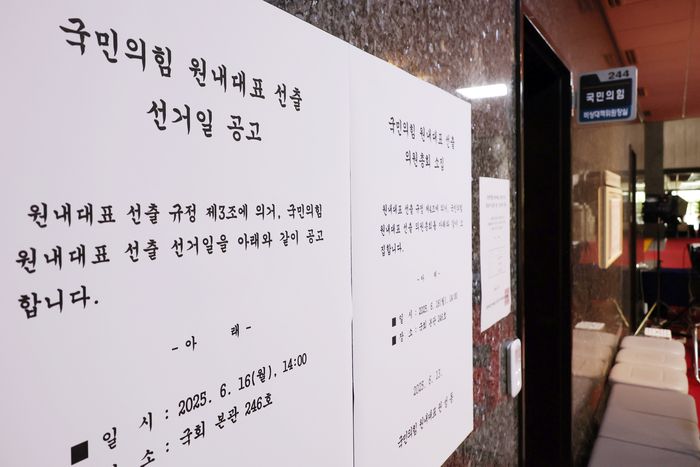 국민의힘 원내대표 선출
선거일 공고
원내대표 선출 규정 제3조에 의거, 국민의힘
원내대표 선출 선거일을 아래와 같이 공고
합니다.
- 아 래 -
■ 일 시 : 2025. 6. 16(월), 14:00
장 소 : 국회 본관 246호
국민의힘 원내대표 선출
의원총회 소집
원내대표 선출 규정 제4조에 의거, 국민의힘
원내대표 선출 의원총회를 아래와 같이 소
집합니다.
- 아 래 -
■ 일 시 : 2025. 6. 16(월), 14:00
■ 장 소 : 국회 본관 246호
2025. 6. 13.
국민의힘 원내대표 권성동
244
국민의힘
비상대책위원장실